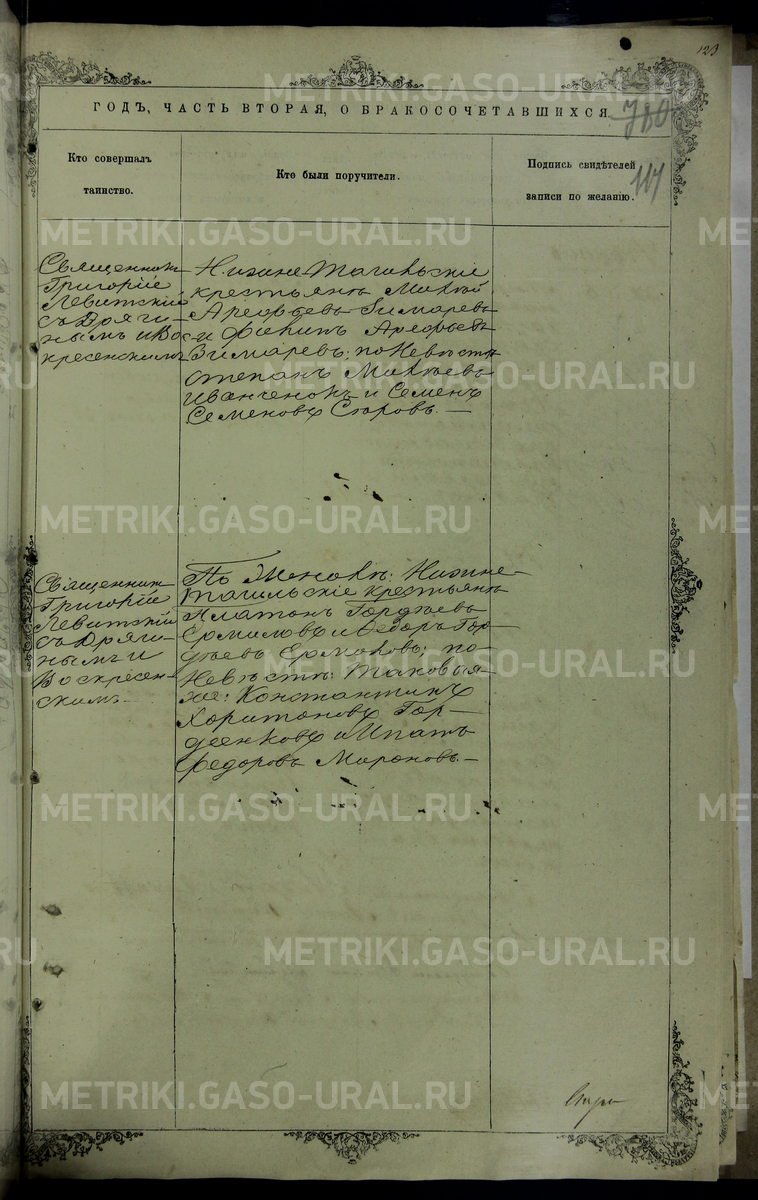 123
ГОДЪ, ЧАСТЬ ВТОРАЯ, О БРАКОСОЧЕТАВШИХСЯ
780
Кто совершалъ таинство.
Кто были поручители.
Подпись свидѣтелей записи по желанію.
117
Священникъ
Григорій
Левитскій
съ Дряги-
нымъ и Вос-
кресенскимъ
Нижне Тагильскіе
крестьяне
Арефьевъ Зимаревъ
и Арефьевъ
Зимаревъ; по Невѣстѣ
Степанъ
Иванченокъ и Семенъ
Семеновъ
Священникъ
Григорій
Левитскій
съ Дряги-
нымъ и
Воскресен-
скимъ
По Женихѣ: Нижне-
тагильскіе крестьяне
Платонъ Гордѣевъ
Ермаковъ и Ѳедоръ Гор-
дѣевъ Ермаковъ; по
Невѣстѣ: таковые
же: Константинъ
Харитоновъ Гор-
деенковъ и Ипатъ
Федоровъ Мироновъ.
METRIKI.GASO-URAL.RU